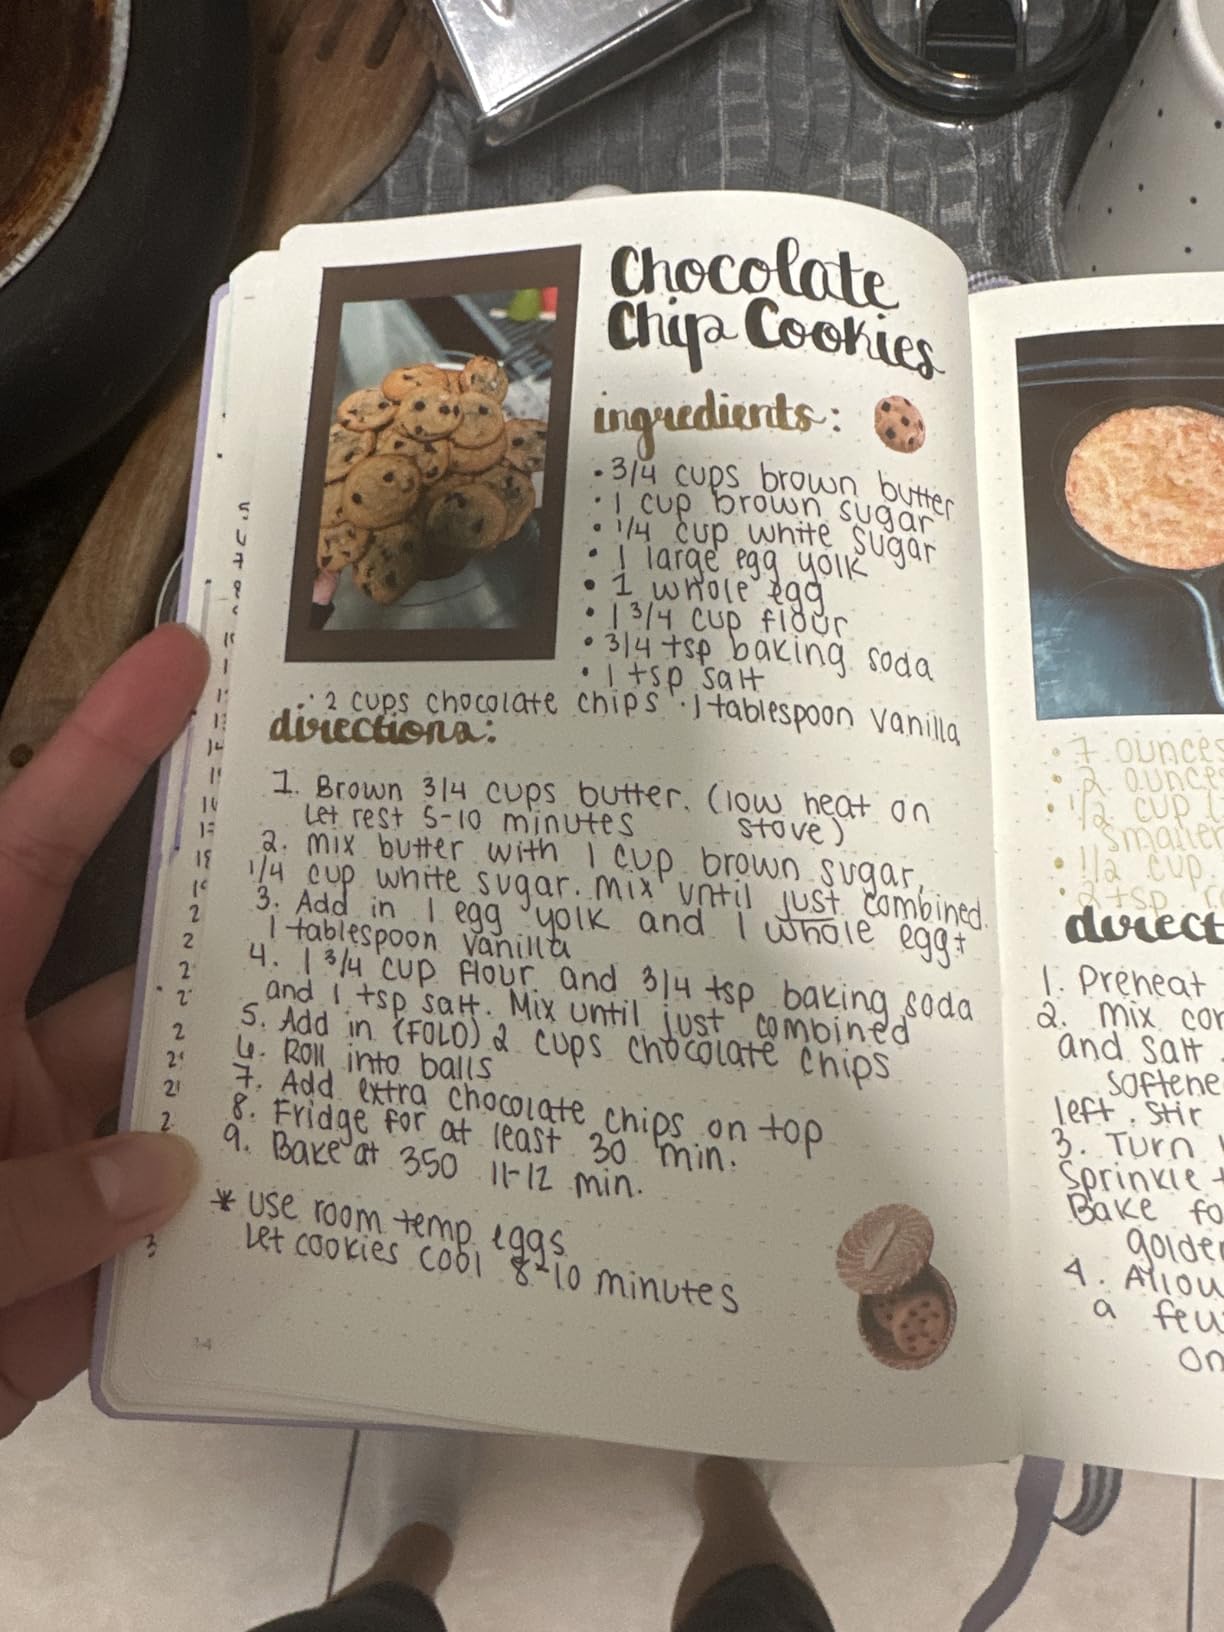 Chocolate
Chip Cookies
ingredients:
• 3/4 cups brown butter
• 1 cup brown sugar
• 1/4 cup white sugar
• 1 large egg yolk
• 1 whole egg
• 1 3/4 cup flour
• 3/4 tsp baking soda
• 1 tsp salt
• 2 cups chocolate chips • 1 tablespoon vanilla
directions:
1. Brown 3/4 cups butter. (low heat on
Let rest 5-10 minutes stove)
2. mix butter with 1 cup brown sugar,
1/4 cup white sugar. mix until just combined.
3. Add in 1 egg yolk and 1 whole egg +
1 tablespoon vanilla
4. 1 3/4 cup flour and 3/4 tsp baking soda
and 1 tsp salt. Mix until just combined
5. Add in (FOLD) 2 cups chocolate chips
6. Roll into balls
7. Add extra chocolate chips on top
8. Fridge for at least 30 min.
9. Bake at 350 11-12 min.
* use room temp eggs
Let cookies cool 8-10 minutes
14
• 7 ounces
• 2 ounces
• 1/2 cup
smaller
• 1/2 cup
• 2 tsp
direct
1. Preheat
2. mix cor
and salt.
softene
left. Stir
3. Turn
Sprinkle
Bake fo
golden
4. Allow
a few
on